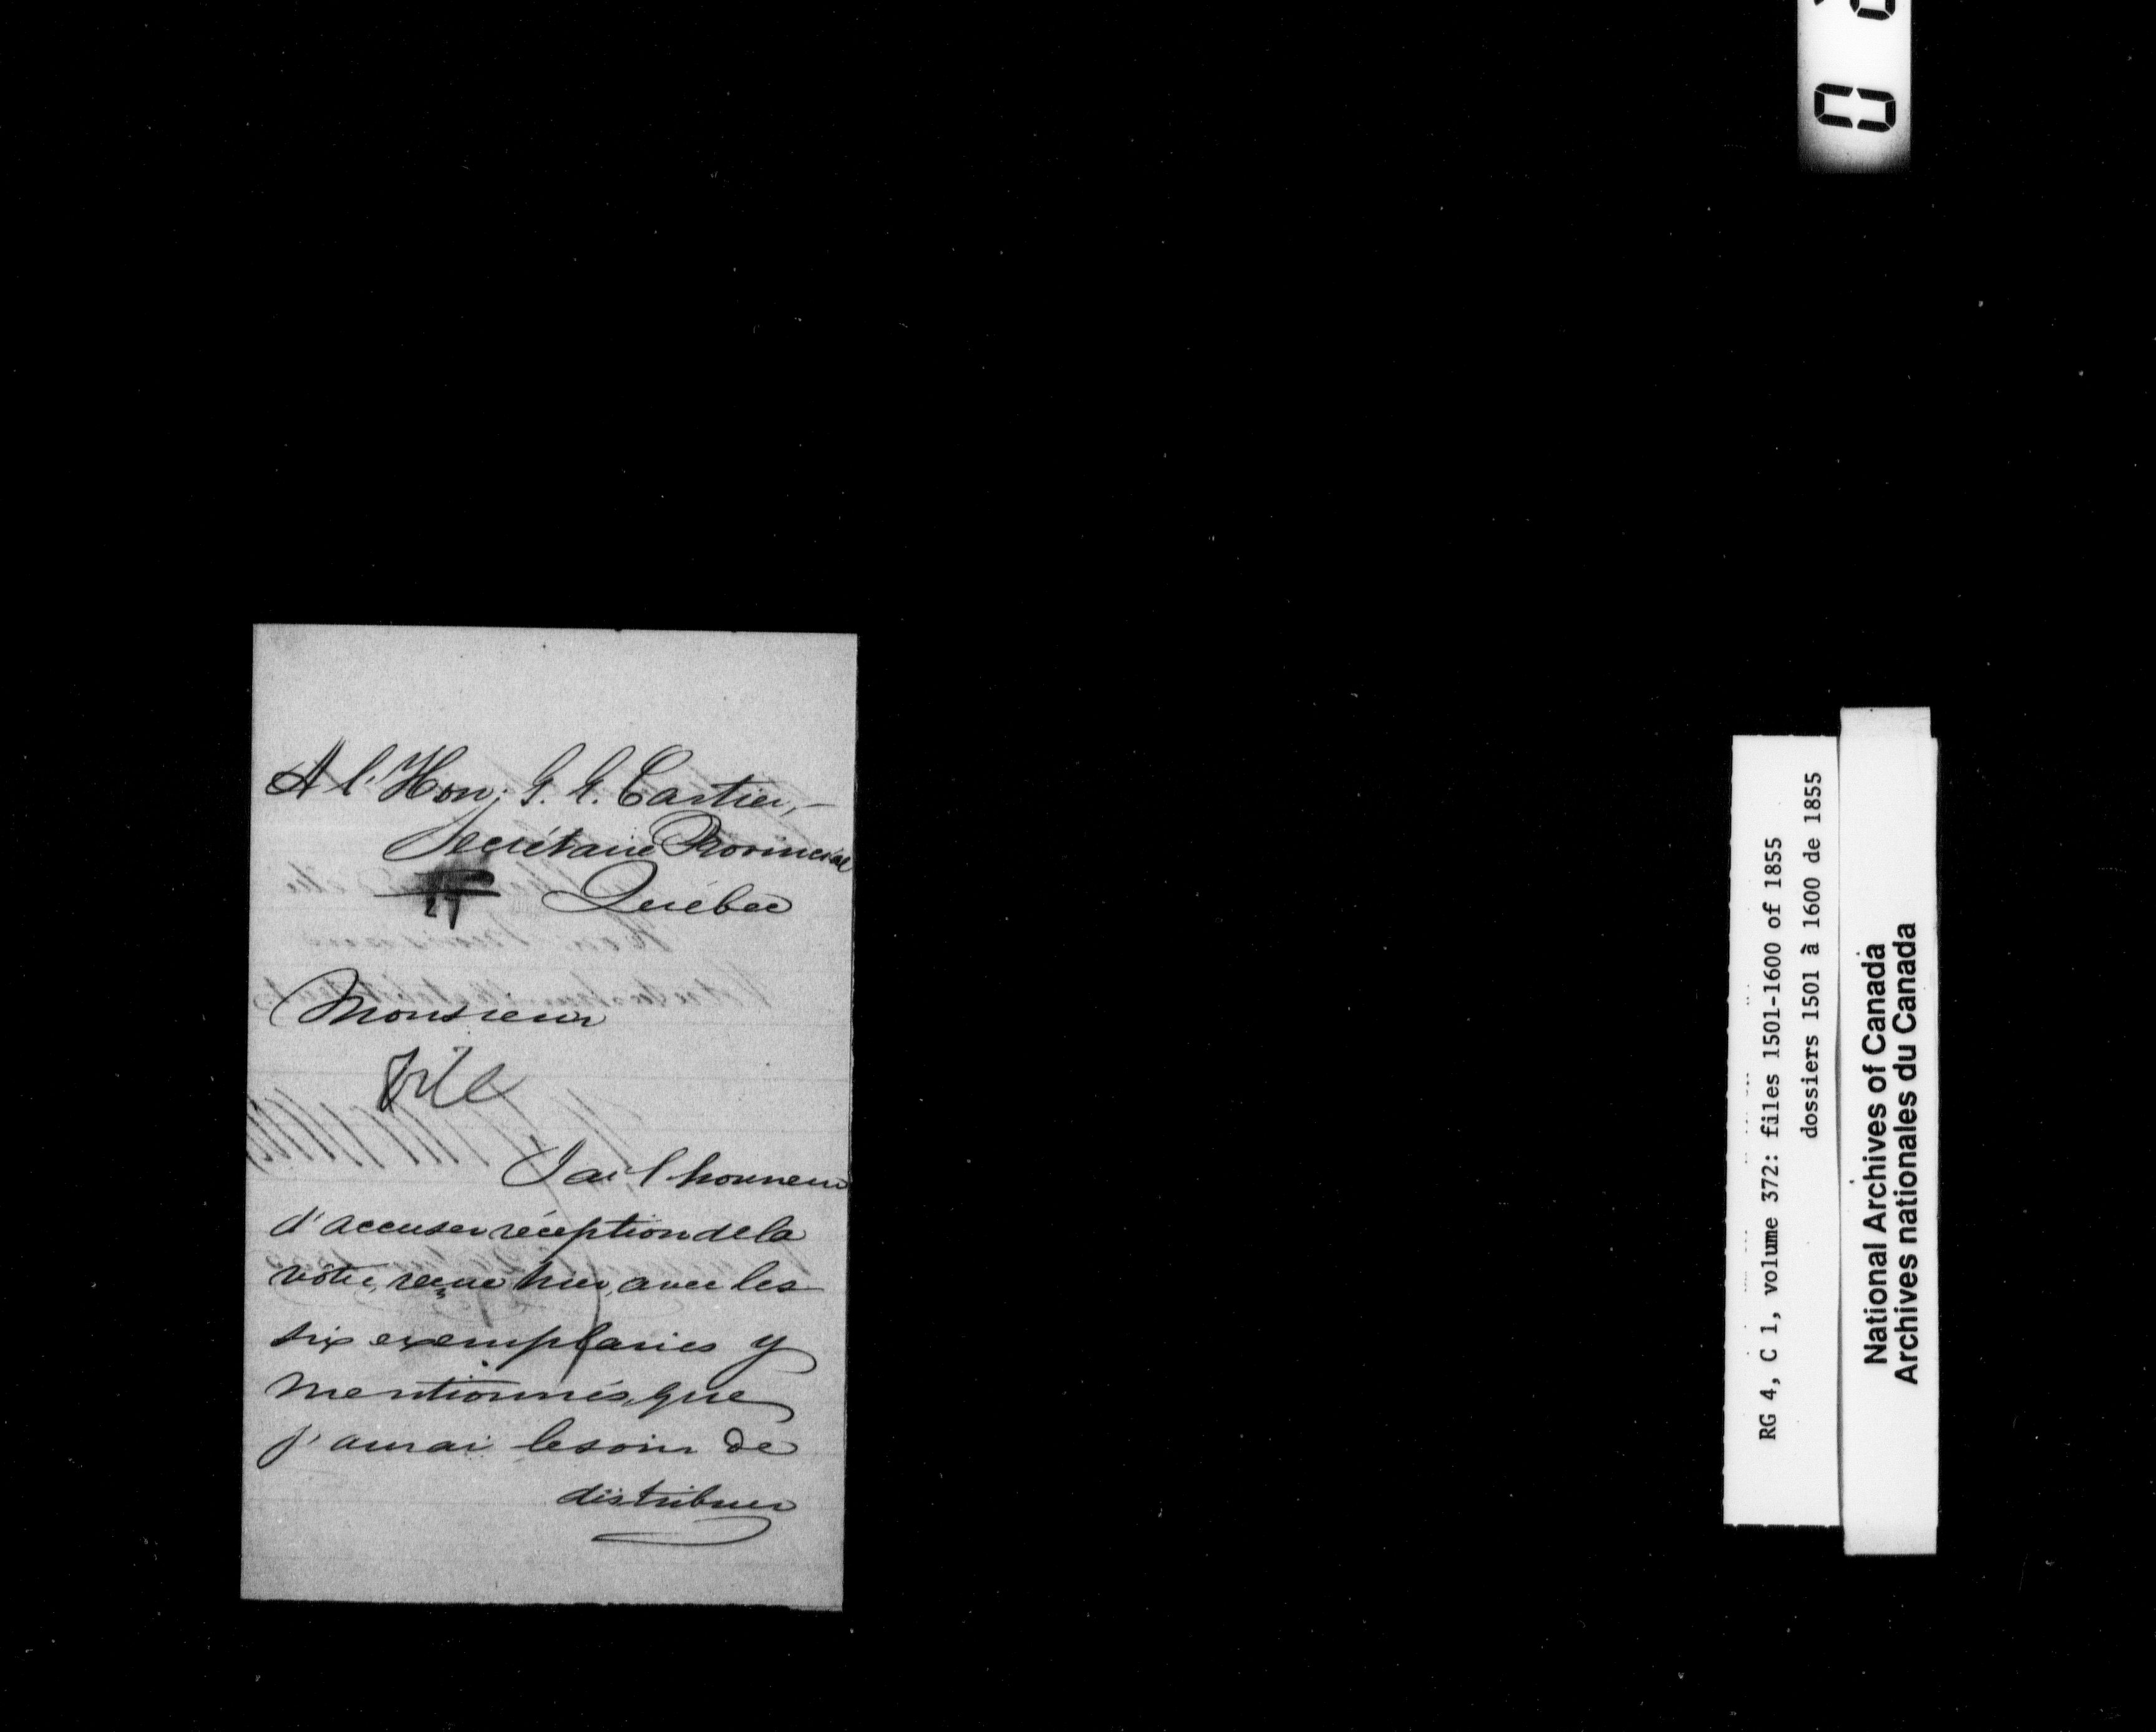 A l'Hon: G. E. Cartier,
Secrétaire Provincial
Québec
Monsieur
File
J'ai l'honneur
d'accuser réception de la
vôtre, reçue hier, avec les
six exemplaires y
mentionnés, que
j'aurai le soin de
distribuer
RG 4, C 1, volume 372: files 1501-1600 of 1855
dossiers 1501 à 1600 de 1855
National Archives of Canada
Archives nationales du Canada
0